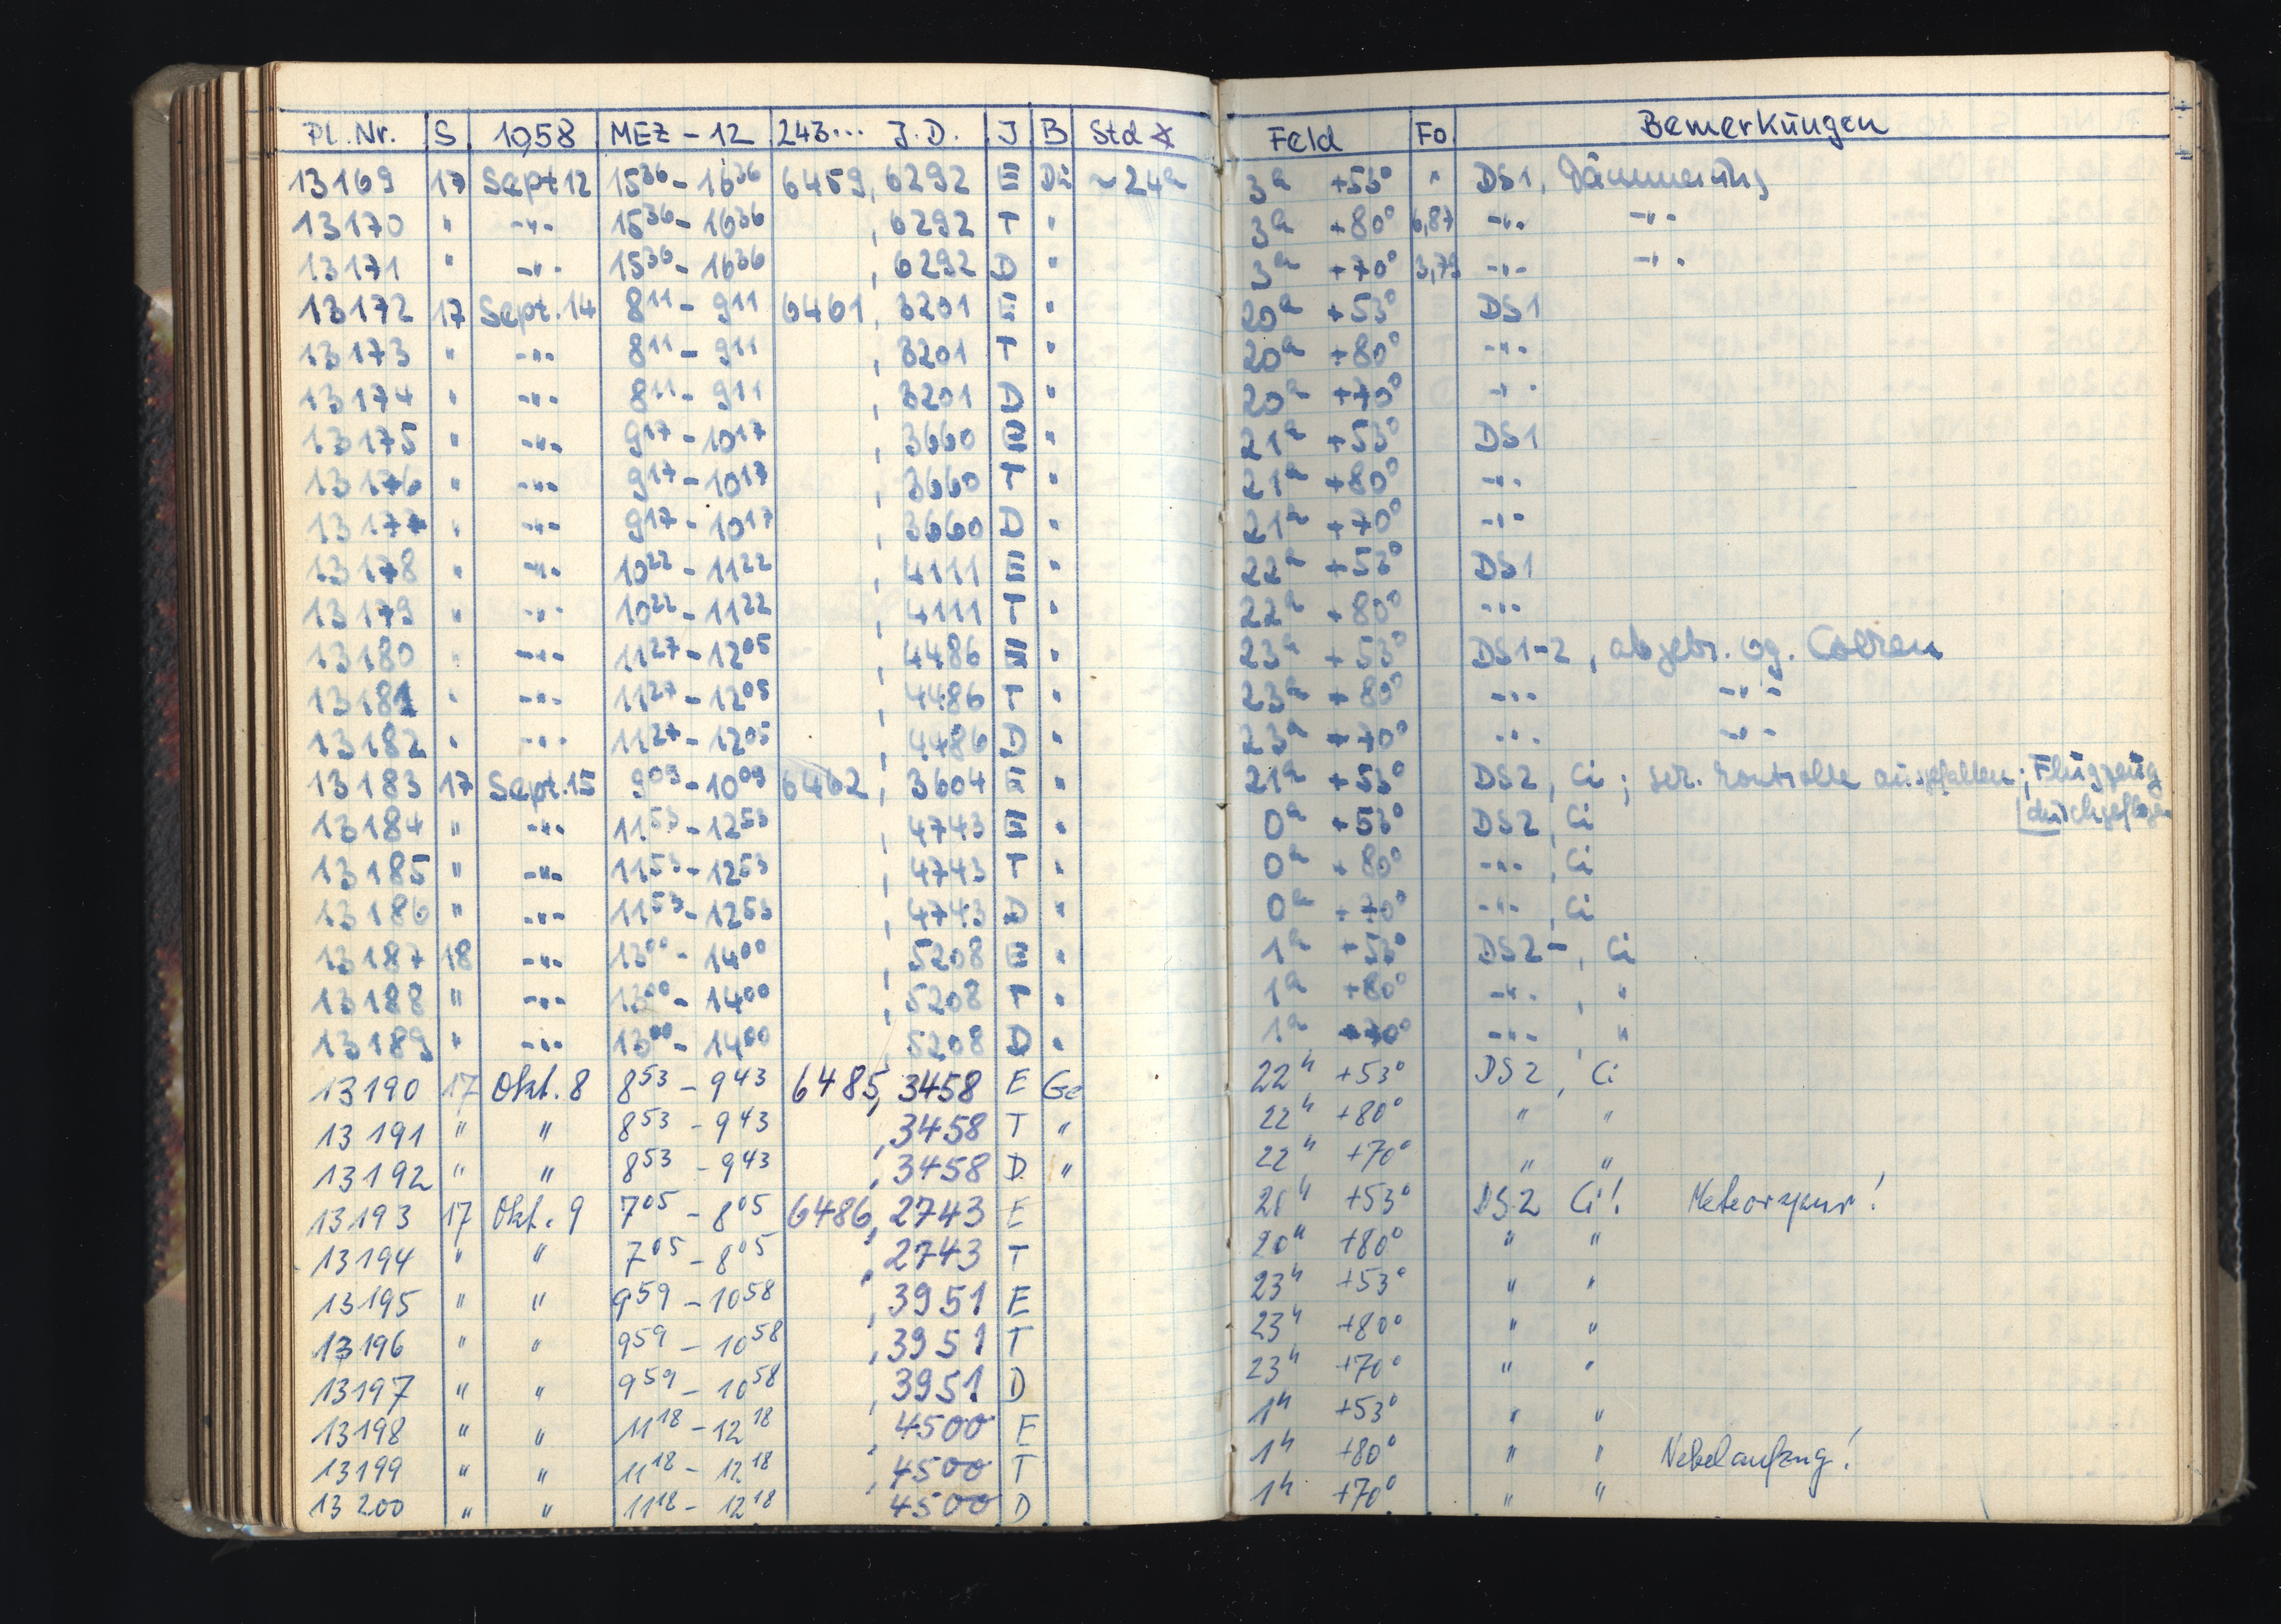 Pl. Nr. S 1958 MEZ - 12 243... J.D. J B Std ∢ Feld Fo. Bemerkungen
13169 17 Sept 12 15³⁶ - 16³⁶ 6459, 6292 E Dü ~24ʰ 3ʰ +53° " DS1, Dämmerung
13170 " -"- 15³⁶ - 16³⁶ , 6292 T " 3ʰ +80° 6,87 -"- -"-
13171 " -"- 15³⁶ - 16³⁶ , 6292 D " 3ʰ +70° 3,79 -"- -"-
13172 17 Sept. 14 8¹¹ - 9¹¹ 6461, 3201 E " 20ʰ +53° DS1
13173 " -"- 8¹¹ - 9¹¹ , 3201 T " 20ʰ +80° -"-
13174 " -"- 8¹¹ - 9¹¹ , 3201 D " 20ʰ +70° -"-
13175 " -"- 9¹⁷ - 10¹⁷ , 3660 E " 21ʰ +53° DS1
13176 " -"- 9¹⁷ - 10¹⁷ , 3660 T " 21ʰ +80° -"-
13177 " -"- 9¹⁷ - 10¹⁷ , 3660 D " 21ʰ +70° -"-
13178 " -"- 10²² - 11²² , 4111 E " 22ʰ +53° DS1
13179 " -"- 10²² - 11²² , 4111 T " 22ʰ +80° -"-
13180 " -"- 11²⁷ - 12⁰⁵ , 4486 E " 23ʰ +53° DS1-2, abgebr. wg. Wolken
13181 " -"- 11²⁷ - 12⁰⁵ , 4486 T " 23ʰ +80° -"- -"-
13182 " -"- 11²⁷ - 12⁰⁵ , 4486 D " 23ʰ +70° -"- -"-
13183 17 Sept. 15 9⁰⁹ - 10⁰⁹ 6462, 3604 E " 21ʰ +53° DS2, Ci; Kontrolle ausgefallen; Flugzeug
durchgeflogen
13184 " -"- 11⁵³ - 12⁵³ , 4743 E " 0ʰ +53° DS2, Ci
13185 " -"- 11⁵³ - 12⁵³ , 4743 T " 0ʰ +80° -"-, Ci
13186 " -"- 11⁵³ - 12⁵³ , 4743 D " 0ʰ +70° -"-, Ci
13187 18 -"- 13⁰⁰ - 14⁰⁰ , 5208 E " 1ʰ +53° DS2-, Ci
13188 " -"- 13⁰⁰ - 14⁰⁰ , 5208 T " 1ʰ +80° -"-, "
13189 " -"- 13⁰⁰ - 14⁰⁰ , 5208 D " 1ʰ +70° -"-, "
13190 17 Okt. 8 8⁵³ - 9⁴³ 6485, 3458 E Ge 22ʰ +53° DS2, Ci
13191 " " 8⁵³ - 9⁴³ , 3458 T " 22ʰ +80° " "
13192 " " 8⁵³ - 9⁴³ , 3458 D " 22ʰ +70° " "
13193 17 Okt. 9 7⁰⁵ - 8⁰⁵ 6486, 2743 E 20ʰ +53° DS2 Ci! Meteorspur!
13194 " " 7⁰⁵ - 8⁰⁵ , 2743 T 20ʰ +80° " "
13195 " " 9⁵⁹ - 10⁵⁸ , 3951 E 23ʰ +53° " "
13196 " " 9⁵⁹ - 10⁵⁸ , 3951 T 23ʰ +80° " "
13197 " " 9⁵⁹ - 10⁵⁸ , 3951 D 23ʰ +70° " "
13198 " " 11¹⁸ - 12¹⁸ , 4500 E 1ʰ +53° " "
13199 " " 11¹⁸ - 12¹⁸ , 4500 T 1ʰ +80° " " Nebelanfang!
13200 " " 11¹⁸ - 12¹⁸ 4500 D 1ʰ +70° " "